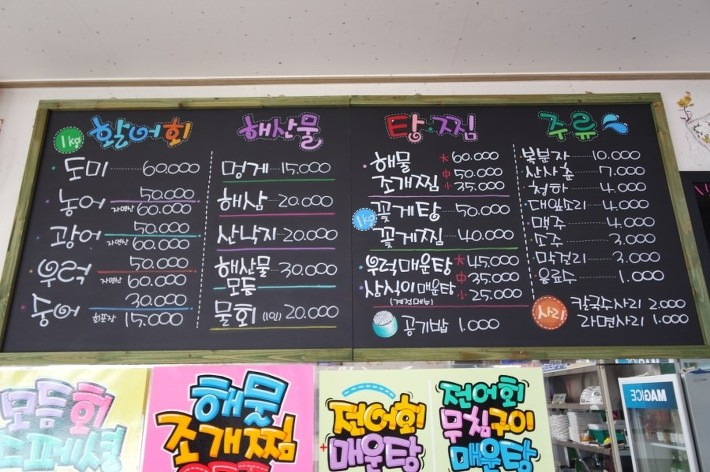 1kg 활어회
도미 60.000
농어 50.000
자연산 60.000
광어 50.000
자연산 60.000
우럭 50.000
자연산 60.000
숭어 30.000
회포장 15.000
해산물
멍게 15.000
해삼 20.000
산낙지 20.000
해산물 30.000
모듬
물회 (1인) 20.000
탕·찜
해물 大 60.000
조개찜 中 50.000
小 35.000
1kg 꽃게탕 50.000
꽃게찜 40.000
우럭매운탕 大 45.000
中 35.000
삼식이매운탕 小 25.000
(계절메뉴)
공기밥 1.000
주류
복분자 10.000
산사춘 7.000
청하 4.000
대잎소리 4.000
맥주 4.000
소주 3.000
막걸리 3.000
음료수 1.000
사리 칼국수사리 2.000
라면사리 1.000
모듬회
스페셜
해물
조개찜
전어회
+매운탕
전어회
무침구이
매운탕
MAGICE